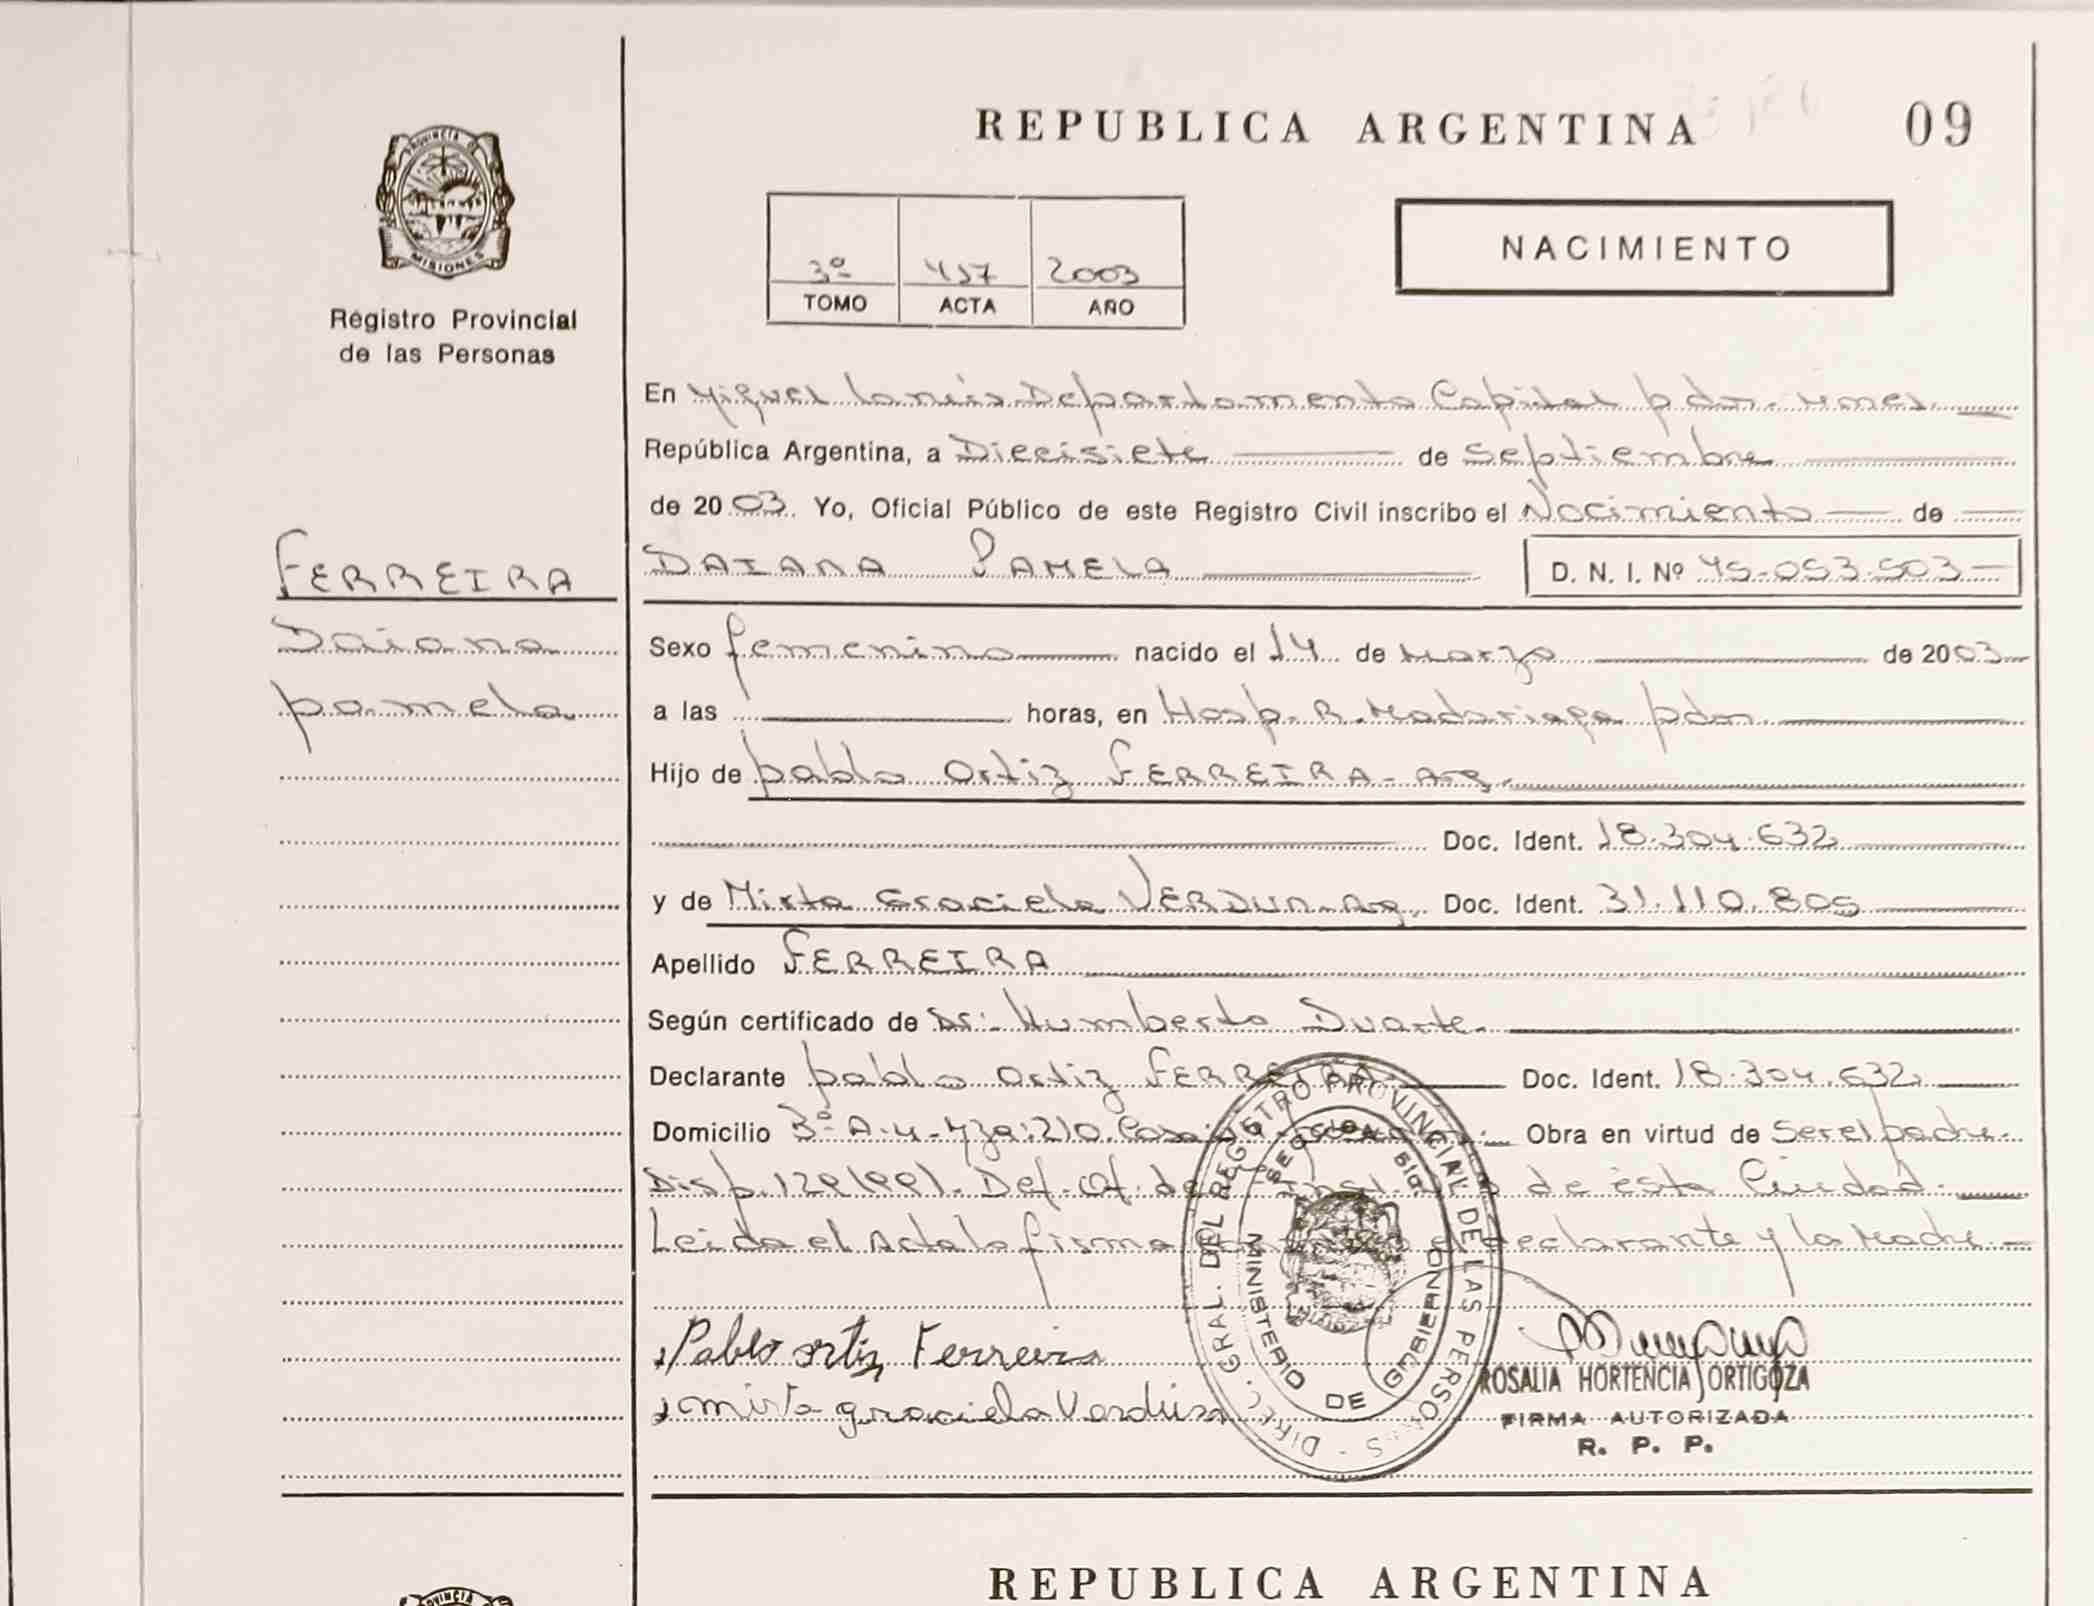 REPUBLICA ARGENTINA 09
PROVINCIA DE
MISIONES
Registro Provincial
de las Personas
NACIMIENTO
3º 417 2003
TOMO ACTA AÑO
En Miguel Lanús Departamento Capital pdas. Mnes.
República Argentina, a Diecisiete de Septiembre
de 2003. Yo, Oficial Público de este Registro Civil inscribo el Nacimiento de
FERREIRA
DAIANA PAMELA D. N. I. Nº 45.053.503
Daiana
Sexo femenino nacido el 14 de Marzo de 2003
pamela
a las horas, en Hosp. R. Madariaga pdas
Hijo de pablo Ortiz FERREIRA-Arg.
Doc. Ident. 18.304.632
y de Mirta Graciela VERDUN-Arg. Doc. Ident. 31.110.805
Apellido FERREIRA
Según certificado de Dr. Humberto Duarte
Declarante pablo Ortiz FERREIRA Doc. Ident. 18.304.632
Domicilio Casa Obra en virtud de Ser el padre
Disp. Def. de esta Ciudad.
Leida el Acta la firma el declarante y la Madre
Pablo ortiz Ferreira
mirta graciela Verdun
DIREC. GRAL. DEL REGISTRO PROVINCIAL DE LAS PERSONAS
MINISTERIO DE GOBIERNO
ROSALIA HORTENCIA ORTIGOZA
FIRMA AUTORIZADA
R. P. P.
REPUBLICA ARGENTINA
PROVINCIA